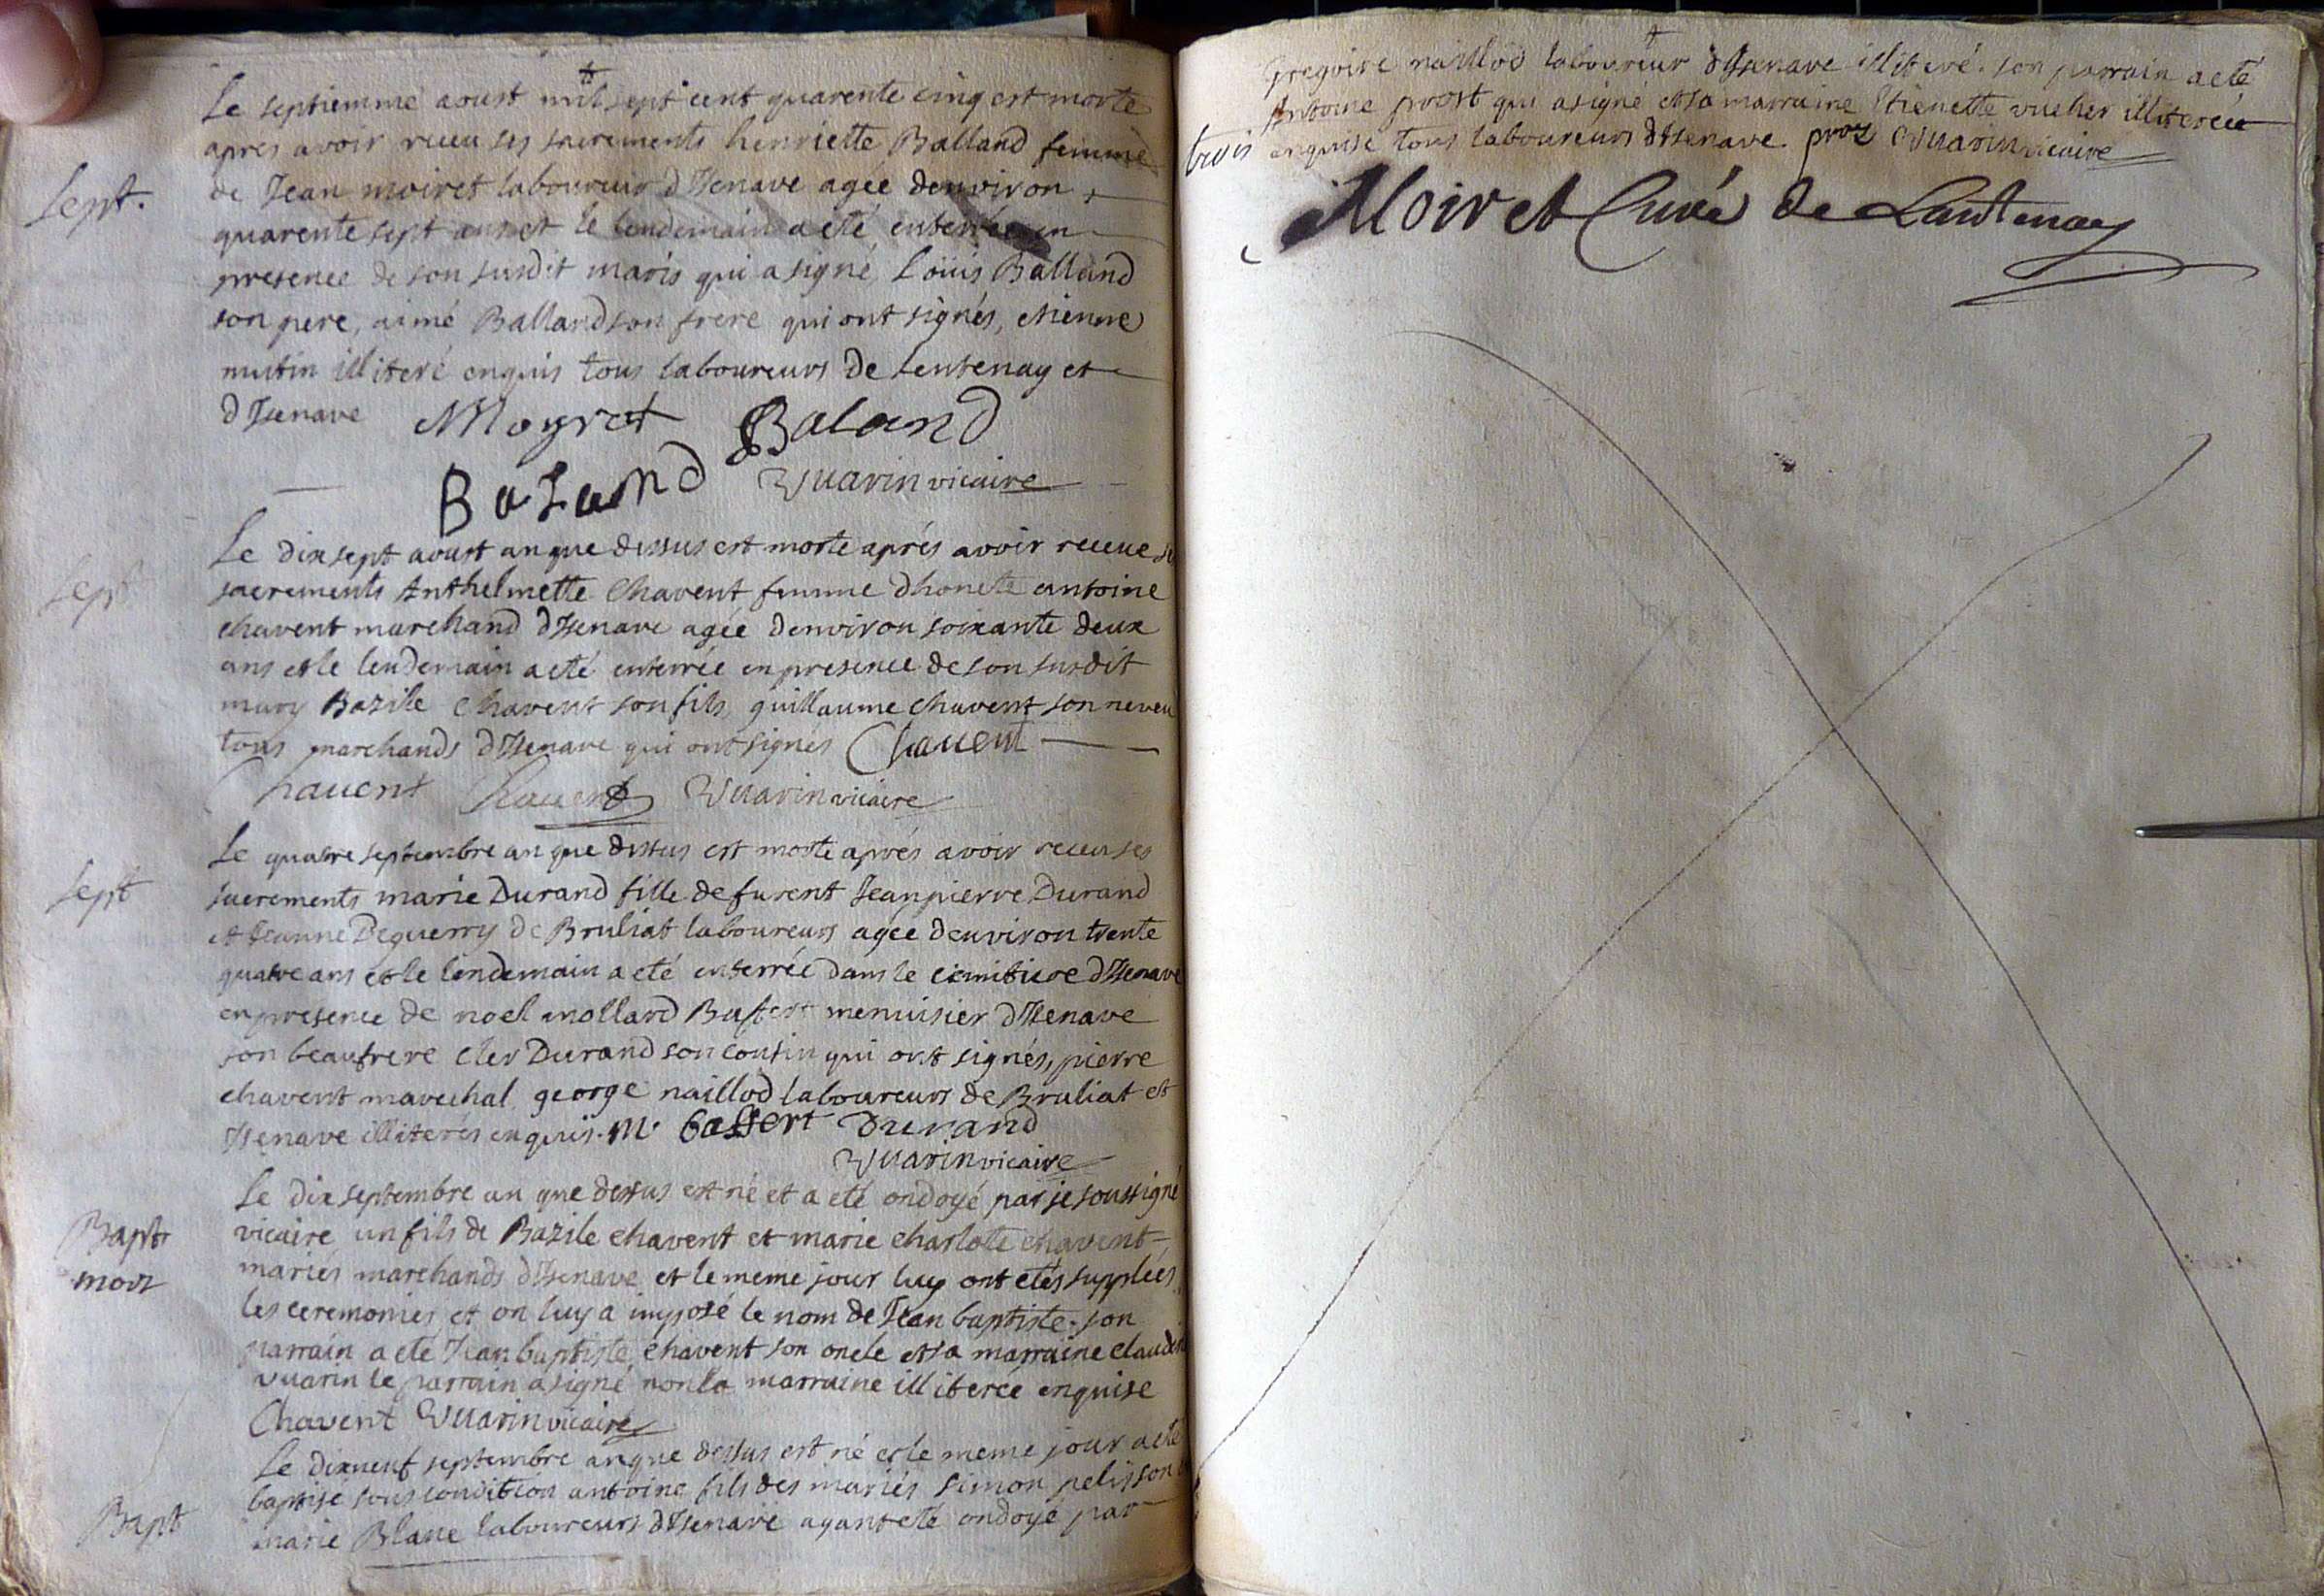 Le septiemme aoust mil sept cent quarente cinq est morte
apres avoir receu ses sacrements henriette Balland femme
Sept.
de Jean moiret laboureur d'Isenave agée denviron
quarente sept ans et le lendemain a eté enterrée en
presence de son susdit maris qui a signé, Loüis Balland
son pere, aimé Balland son frere qui ont signés, etienne
mutin illiteré enquis tous laboureurs de Lentenay et
d'Isenave Moyret Baland
Baland Vuarin vicaire
Le dix sept aoust an que dessus est morte aprés avoir receue
Sept
sacrements Anthelmette Chavent femme dhonete antoine
chavent marchand d'Isenave agée denviron soixante deux
ans et le lendemain a eté enterrée en presence de son susdit
mary Bazile Chavent son fils, guillaume chavent son neveu
tous marchands d'Isenave qui ont signés Chavent
Chavent Chavent Vuarin vicaire
Le quatre septembre an que dessus est morte aprés avoir receu ses
Sept
sacrements marie Durand fille de furent Jeanpierre Durand
et Jeanne Deguerry de Bruliat laboureurs agée denviron trente
quatre ans et le lendemain a eté enterrée dans le cimitiere d'Isenave
en presence de noel mollard Bastert menuisier d'Isenave
son beaufrere cler Durand son cousin qui ont signés, pierre
chavent marechal, george naillod laboureurs de Bruliat et
Isenave illiterés enquis. M. Durand
Vuarin vicaire
Le dix septembre an que dessus est né et a eté ondoyé par je soussigné
Bapt
vicaire un fils de Bazile chavent et marie charlote chavent
mort
mariés marchands d'Isenave et le meme jour luy ont etés supplées
les ceremonies et on luy a imposé le nom de Jean baptiste. son
parrain a eté Jean baptiste chavent son oncle et sa marraine
vuarin le parrain a signé non la marraine illiterée enquise
Chavent Vuarin vicaire
Le dixneuf septembre an que dessus est né et le meme jour a eté
baptisé sous condition antoine fils des mariés simon pelisson
Bapt
marie Blanc laboureurs d'Isenave ayant eté ondoyé par
Gregoire naillod laboureur d'Isenave illiteré. son parrain a eté
Antoine prost qui a signé et sa marraine Etienette vucher illiterée
trois
enquise tous laboureurs d'Isenave. Vuarin vicaire
Moiret Curé de Lantenay